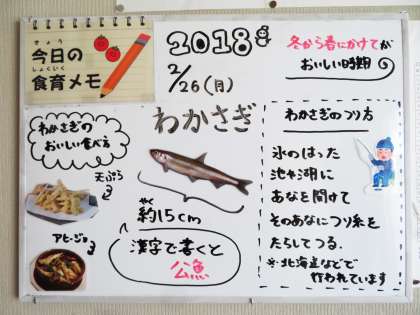 きょう
今日の
しょくいく
食育メモ
2018
2/26(月)
冬から春にかけてが
おいしい時期
わかさぎ
わかさぎの
おいしい食べ方
天ぷら
アヒージョ
やく
約15cm
漢字で書くと
公魚
わかさぎのつり方
氷のはった
池や湖に
あなを開けて
そのあなにつり糸を
たらしてつる。
※北海道などで
行われています